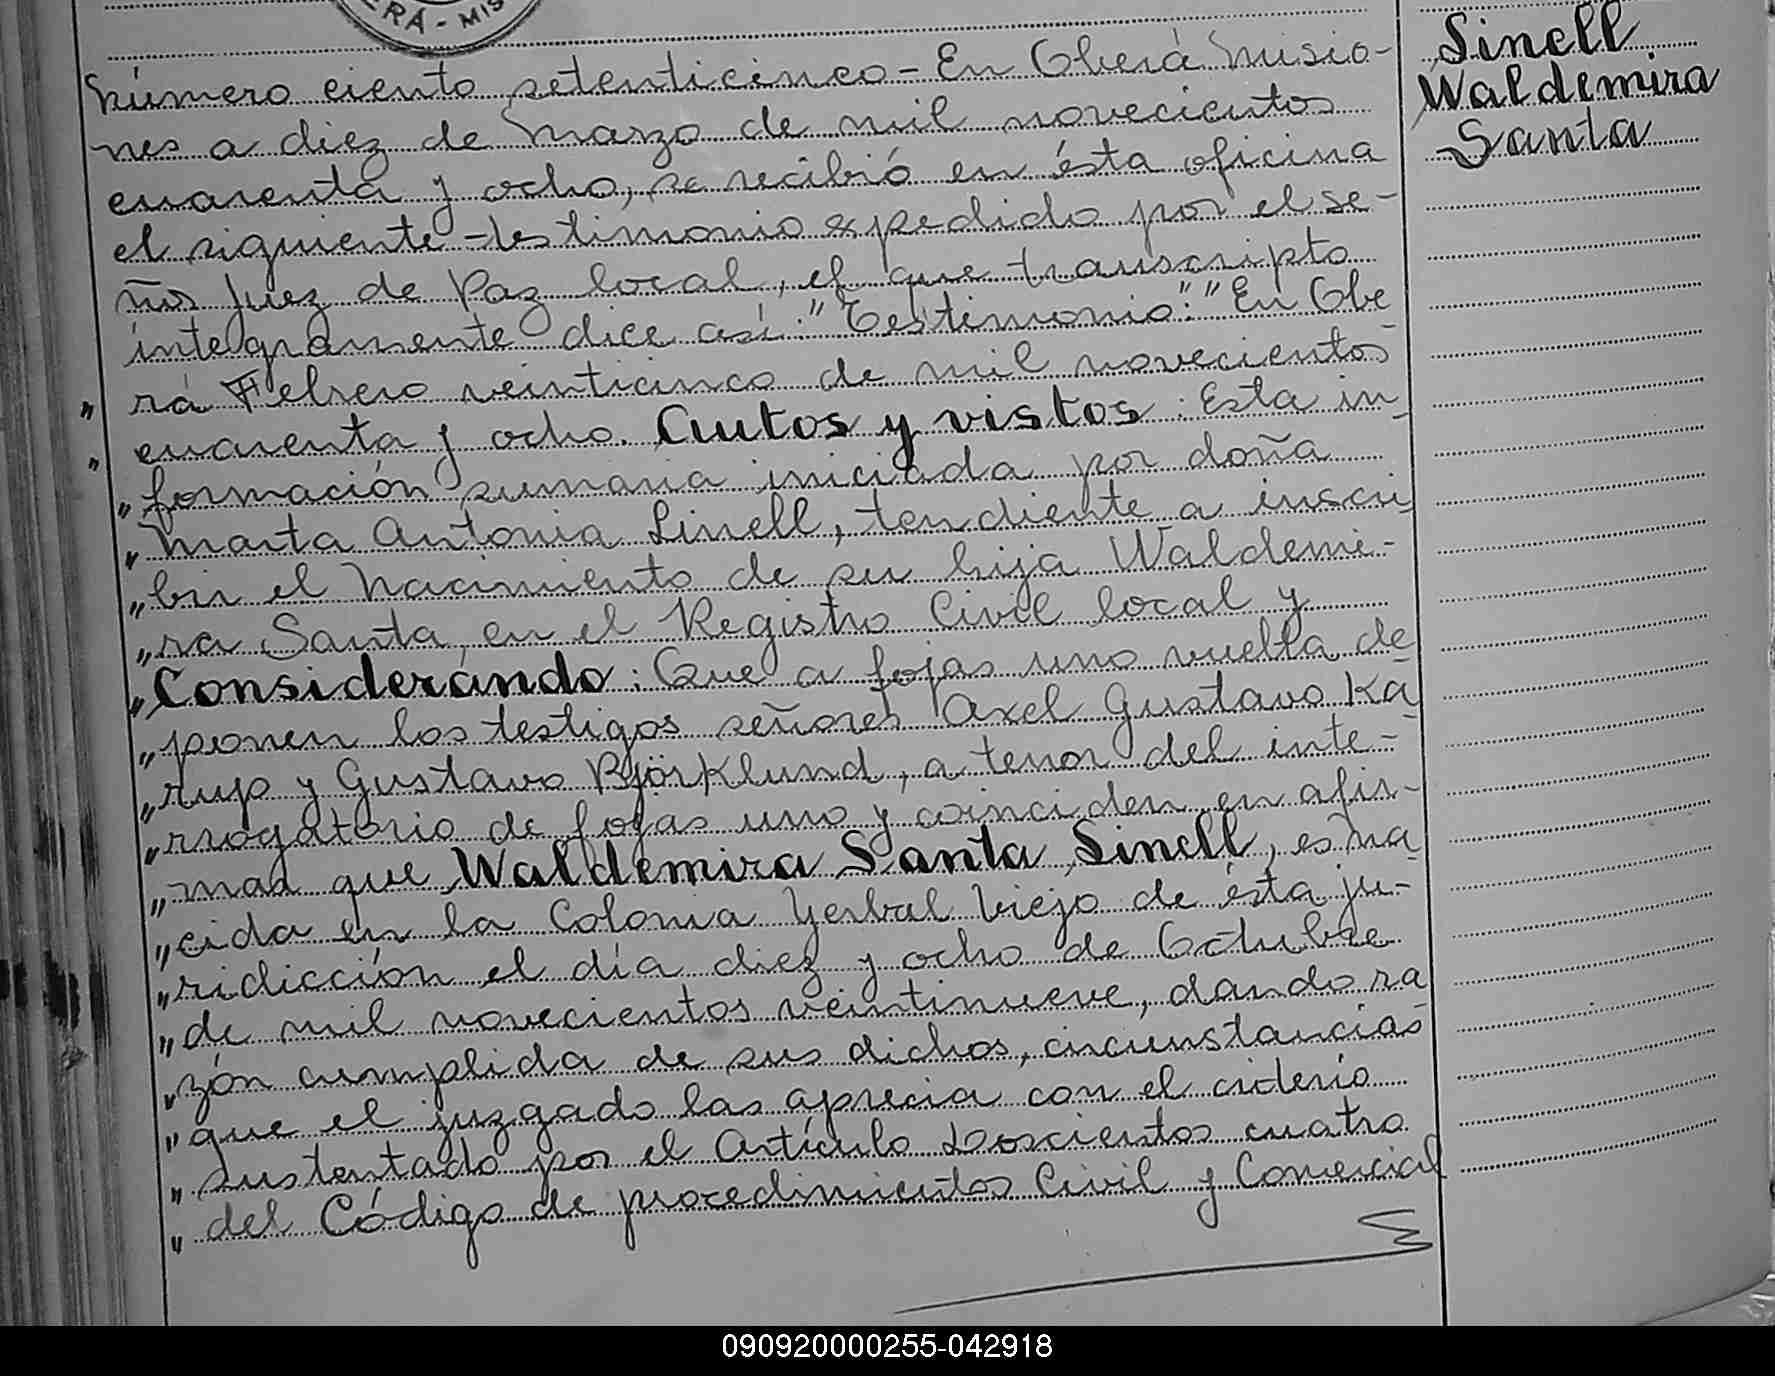 ERÁ - MIS
Sinell
Waldemira
Santa
Número ciento setenticinco - En Oberá Misio-
nes a diez de Marzo de mil novecientos
cuarenta y ocho, se recibió en ésta oficina
el siguiente testimonio expedido por el se-
ñor Juez de Paz local, el que transcripto
integramente dice así: "Testimonio": "En Obe
" rá Febrero veinticinco de mil novecientos
" cuarenta y ocho. Autos y vistos: Esta in-
" formación sumaria iniciada por doña
" Marta Antonia Sinell, tendiente a inscri
" bir el nacimiento de su hija Waldemi-
" ra Santa, en el Registro Civil local y
" Considerando: Que a fojas uno vuelta de
" ponen los testigos señores Axel Gustavo Ka
" rup y Gustavo Björklund, a tenor del inte-
" rrogatorio de fojas uno y coinciden en afir-
" mar que Waldemira Santa Sinell, es na
" cida en la Colonia Yerbal Viejo de ésta ju-
" ridicción el día diez y ocho de Octubre
" de mil novecientos veintinueve, dando ra
" zón cumplida de sus dichos, circunstancias
" que el juzgado las aprecia con el criterio
" sustentado por el Artículo Doscientos cuatro
" del Código de procedimientos Civil y Comercial
090920000255-042918